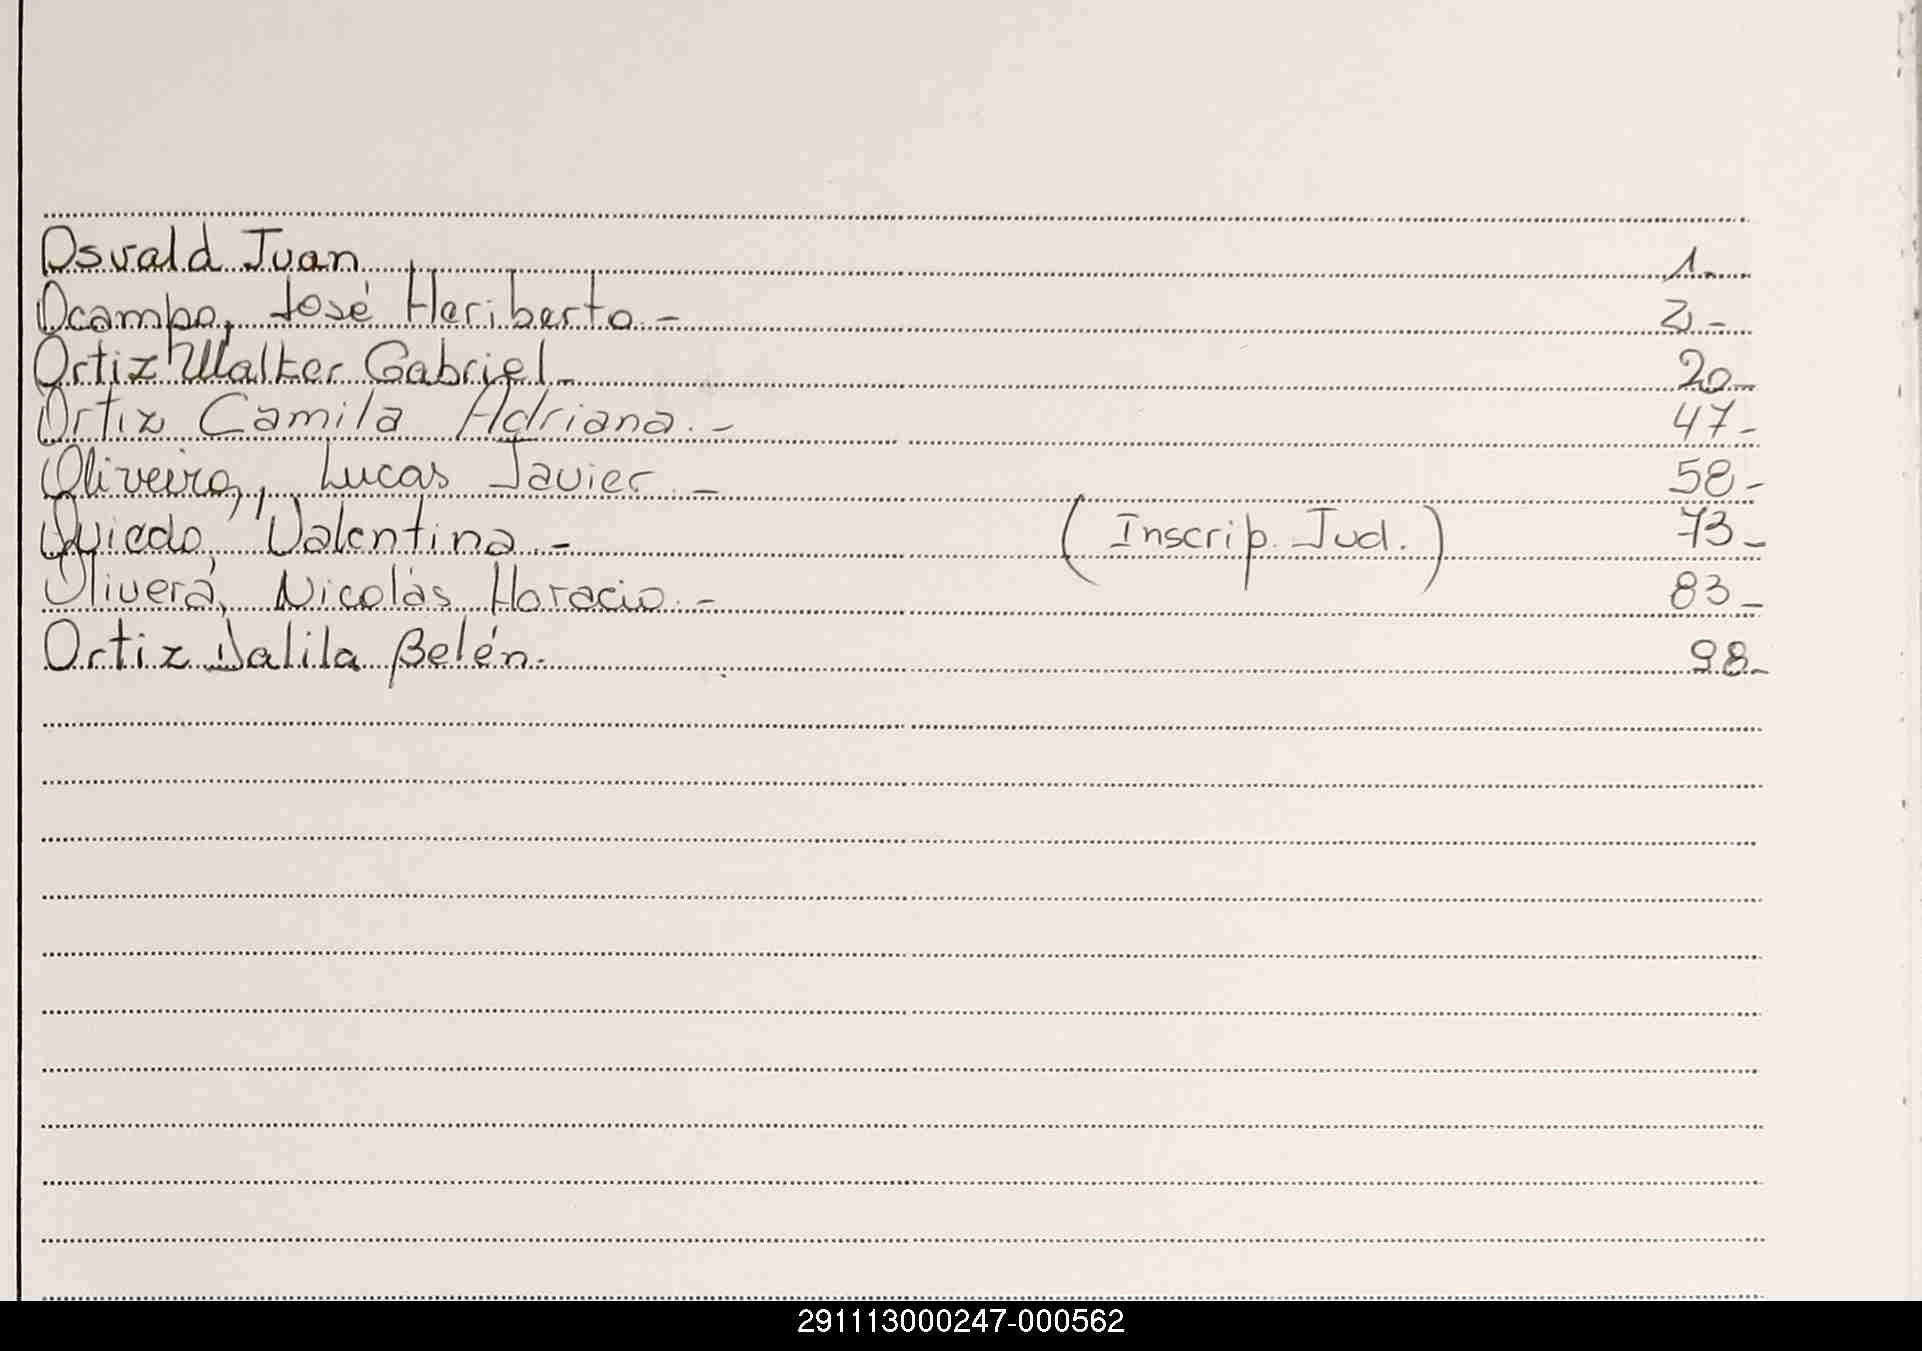 Osvald Juan 1.
Ocampo, José Heriberto.- 2-
Ortiz Walter Gabriel- 20-
Ortiz Camila Adriana.- 47-
Oliveira, Lucas Javier.- 58-
Oviedo, Valentina.- (Inscrip. Jud.) 73-
Olivera, Nicolás Horacio.- 83-
Ortiz Dalila Belén. 98-
291113000247-000562